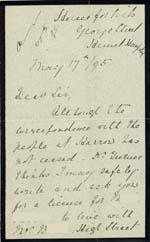 George Street
Hemel Hempsted
May 17th/95
Dear Sir,
Although the
correspondence with the
people at Harrow has
not ceased - Dr. Turner
thinks I may safely
write and ask you
for a licence for
to live with
Mrs. B High Street